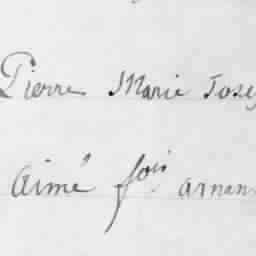 Pierre Marie Josep
Aimé fois arman